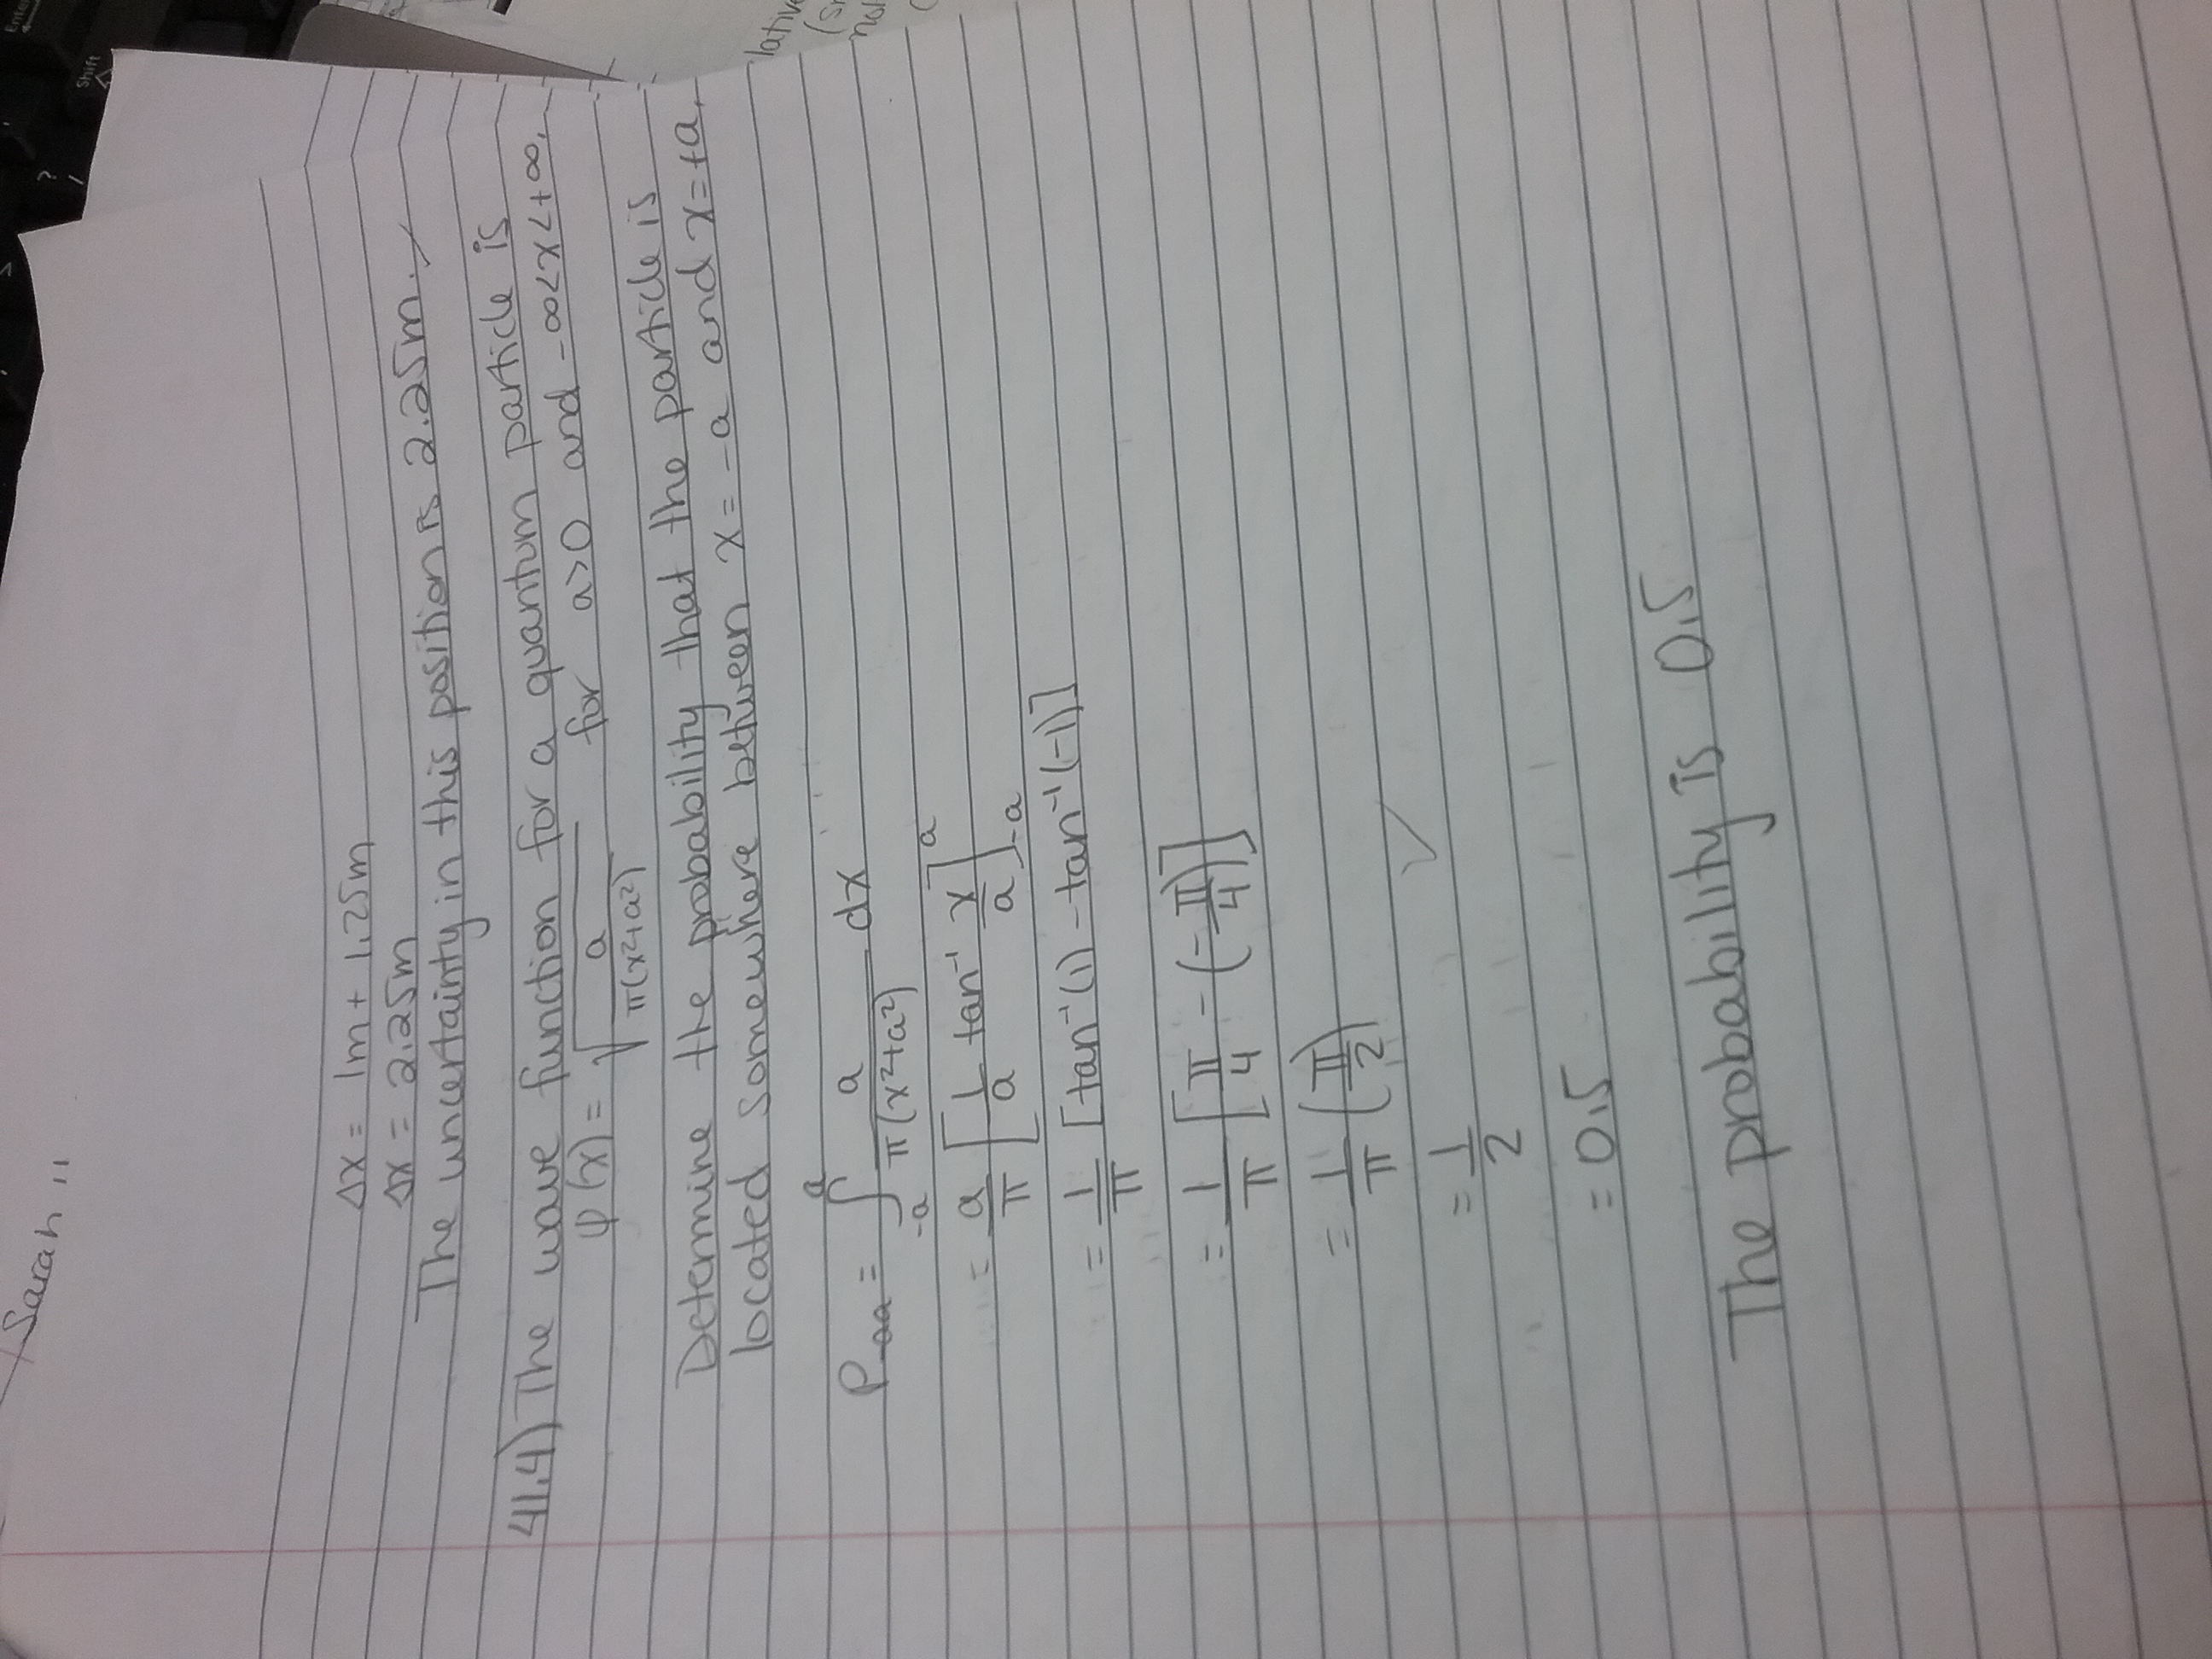 Sarah
Δx = 1m + 1.25m
Δx = 2.25m
The uncertainty in this position is 2.25m.
41.4) The wave function for a quantum particle is
ψ(x) = √a/π(x²+a²) for a>0 and -∞<x<+∞.
Determine the probability that the particle is
located somewhere between x = -a and x = +a.
P-aa = ∫-a^a a/π(x²+a²) dx
= a/π [1/a tan⁻¹ x/a]-a^a
= 1/π [tan⁻¹(1) - tan⁻¹(-1)]
= 1/π [π/4 - (-π/4)]
= 1/π (π/2)
= 1/2
= 0.5
The probability is 0.5
Shift
Enter